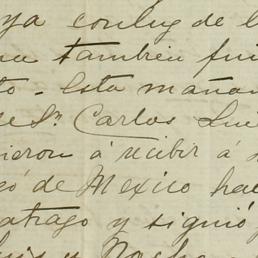 ya con luz de l
na tambien fui
to - Esta mañan
e Sr. Carlos Lui
ieron á recibir á
gó de Mexico hac
atrago y siguió
y Noche